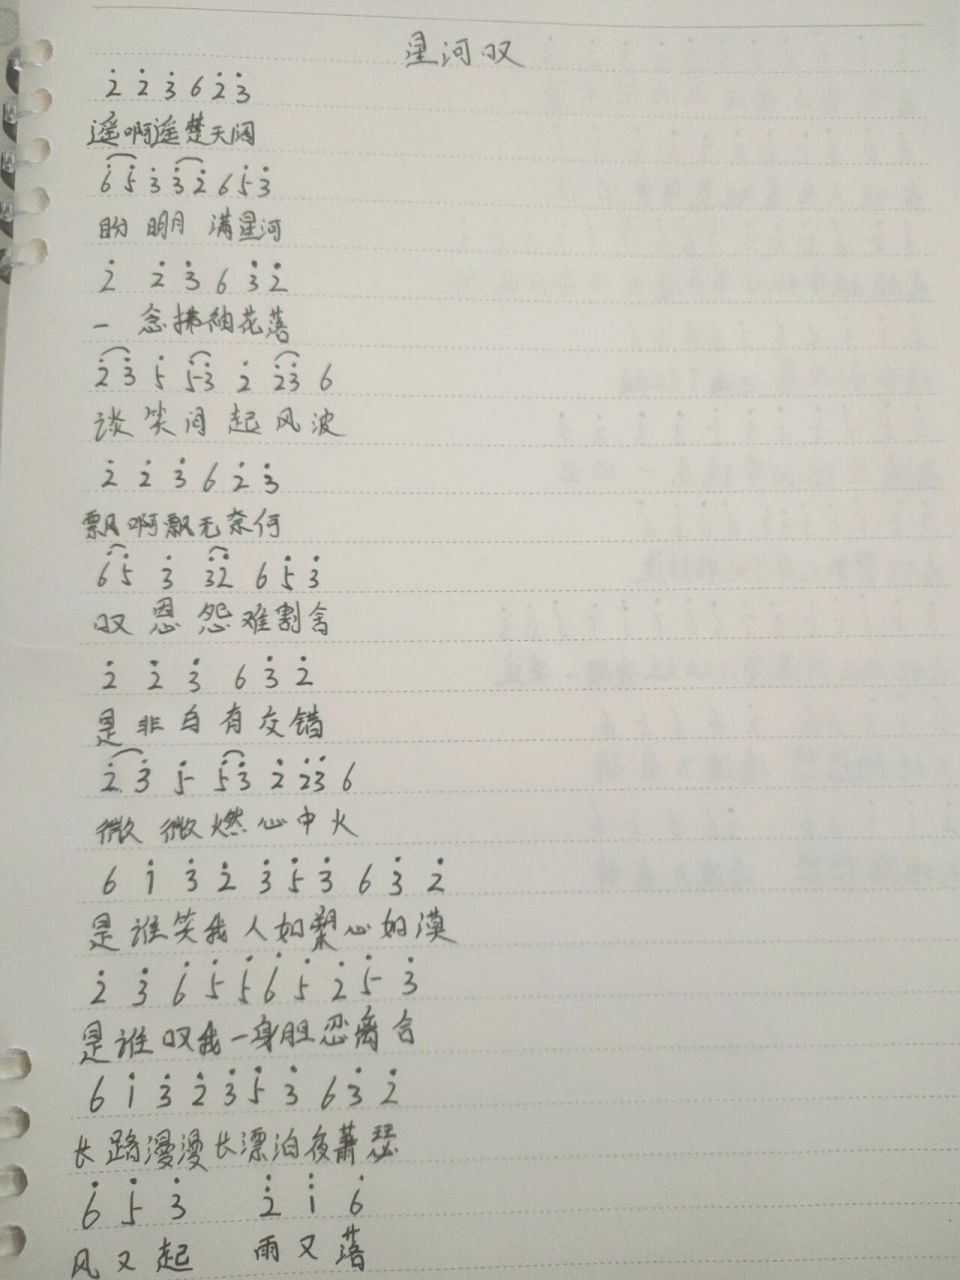 星河叹
2̇ 2̇ 3̇ 6 2̇ 3̇
遥啊遥楚天阔
6̇ 5̇ 3̇ 3̇ 2̇ 6 5̇ 3̇
盼 明月 满星河
2̇ 2̇ 3̇ 6 3̇ 2̇
一 念拂袖花落
2̇ 3̇ 5̇ 5̇3̇ 2̇ 2̇3̇ 6
谈 笑间 起 风 波
2̇ 2̇ 3̇ 6 2̇ 3̇
飘啊飘无奈何
6̇ 5̇ 3̇ 3̇2̇ 6 5̇ 3̇
叹 恩 怨 难割舍
2̇ 2̇ 3̇ 6 3̇ 2̇
是 非 自 有 交 错
2̇ 3̇ 5̇ 5̇3̇ 2̇ 2̇3̇ 6
微 微 燃 心 中 火
6 1̇ 3̇ 2̇ 3̇ 5̇ 3̇ 6 3̇ 2̇
是 谁 笑 我 人如 心如漠
2̇ 3̇ 6̇ 5̇ 5̇ 6̇ 5̇ 2̇ 5̇ 3̇
是谁 叹我一身胆 忍离合
6 1̇ 3̇ 2̇ 3̇ 5̇ 3̇ 6 3̇ 2̇
长 路漫漫长漂泊夜萧瑟
6̇ 5̇ 3̇ 2̇ 1̇ 6̇
风 又 起 雨 又 落